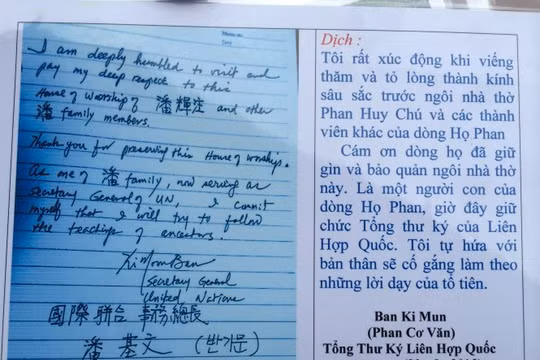 I am deeply humbled to visit and
pay my deep respect to this
House of Worship of 潘輝注 and other
潘 family members.
Thank you for preserving this House of worship.
As one of 潘 family, now serving as
Secretary General of UN, I commit
myself that I will try to follow
the teachings of ancestors.
Ki Moon Ban
Secretary General
United Nations
國際聯合 事務總長
潘基文 (반기문)
Dịch :
Tôi rất xúc động khi viếng
thăm và tỏ lòng thành kính
sâu sắc trước ngôi nhà thờ
Phan Huy Chú và các thành
viên khác của dòng Họ Phan
Cám ơn dòng họ đã giữ
gìn và bảo quản ngôi nhà thờ
này. Là một người con của
dòng Họ Phan, giờ đây giữ
chức Tổng thư ký của Liên
Hợp Quốc. Tôi tự hứa với
bản thân sẽ cố gắng làm theo
những lời dạy của tổ tiên.
Ban Ki Mun
(Phan Cơ Văn)
Tổng Thư Ký Liên Hợp Quốc